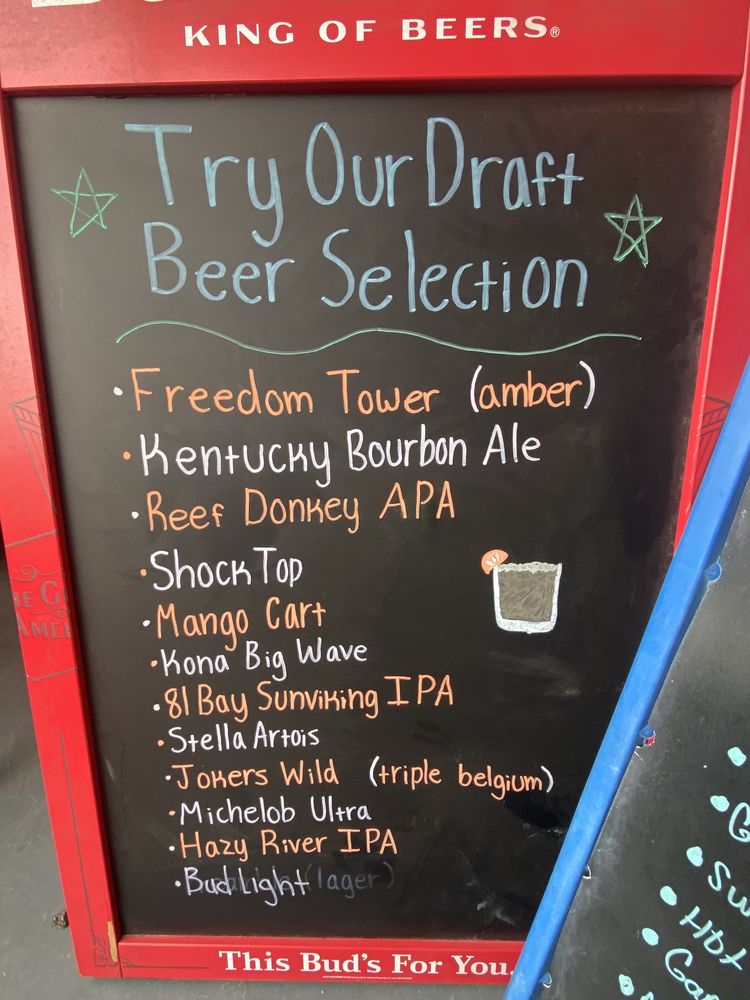 KING OF BEERS®
Try Our Draft
Beer Selection
• Freedom Tower (amber)
• Kentucky Bourbon Ale
• Reef Donkey APA
• Shock Top
• Mango Cart
• Kona Big Wave
• 81 Bay Sunviking IPA
• Stella Artois
• Jokers Wild (triple belgium)
• Michelob Ultra
• Hazy River IPA
• Bud Light (lager)
This Bud's For You.
• Hot